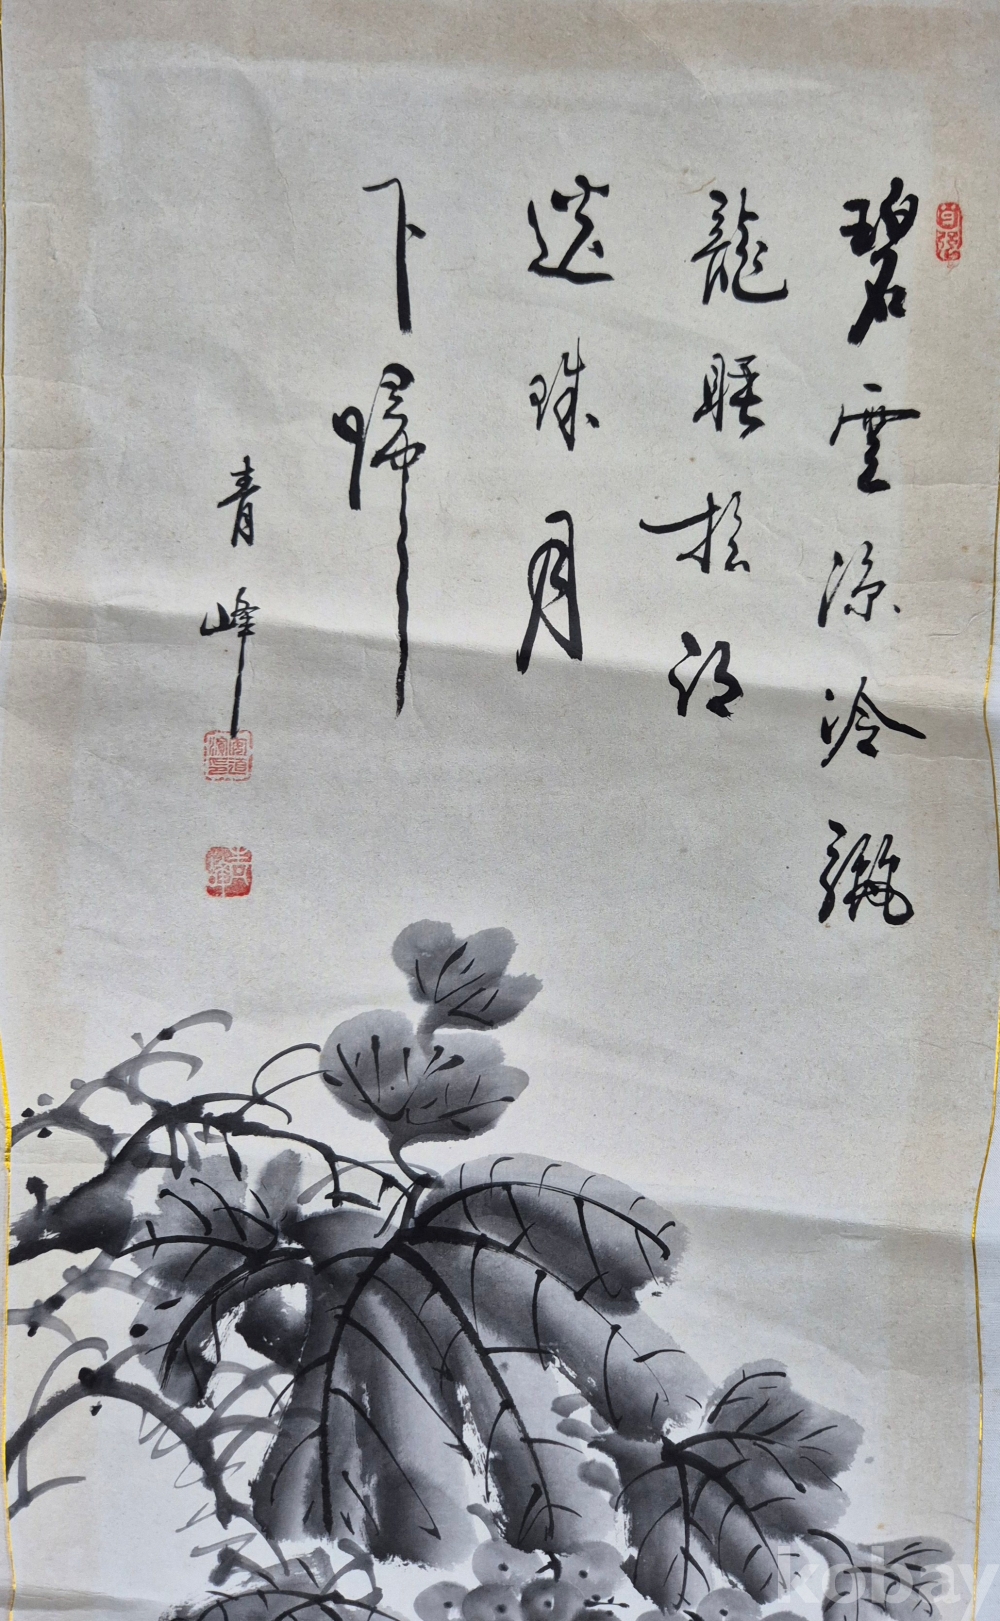 碧雲涼冷驪
龍睡拾得
遺珠月
下歸
青峰
kobay